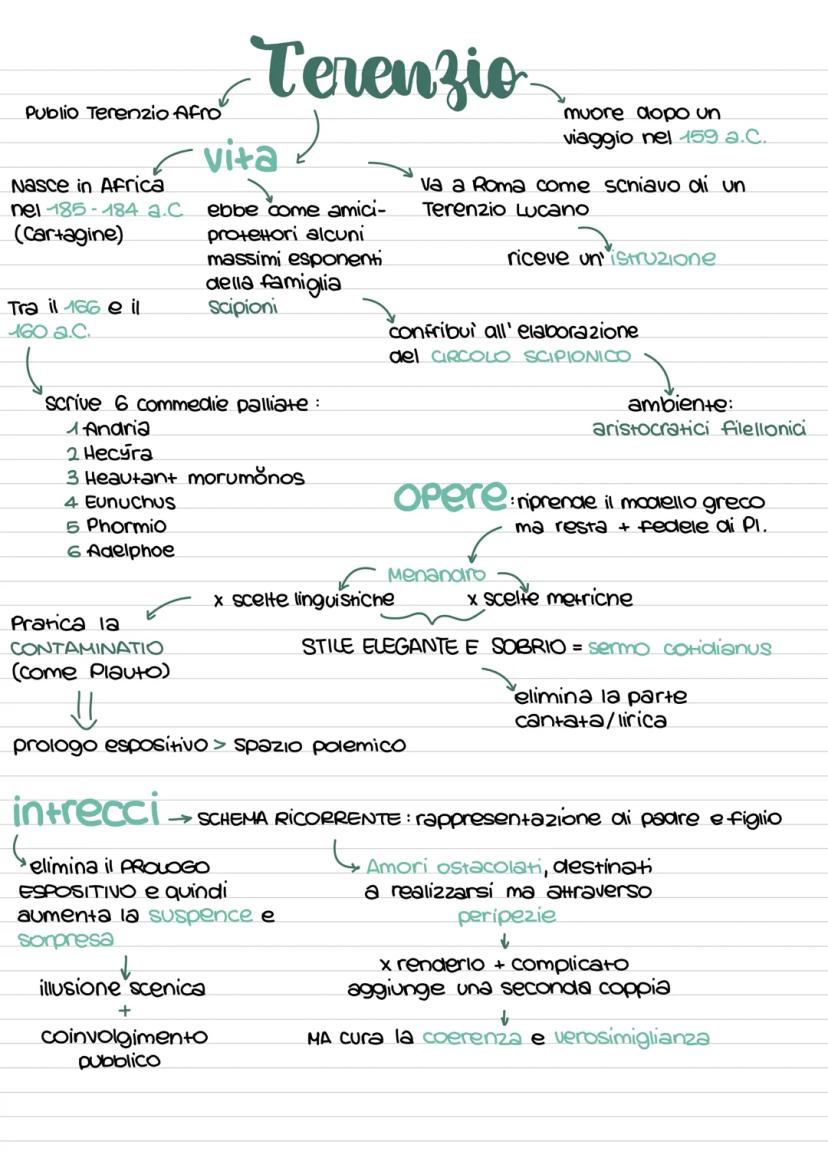 Terenzio
Publio Terenzio Afro
muore dopo un
viaggio nel 159 a.C.
vita
Nasce in Africa
nel 185-184 a.C
(Cartagine)
ebbe come amici-
protettori alcuni
massimi esponenti
della famiglia
Scipioni
Va a Roma come schiavo di un
Terenzio Lucano
riceve un' istruzione
contribuì all' elaborazione
del CIRCOLO SCIPIONICO
ambiente:
aristocratici filellonici
Tra il 166 e il
160 a.C.
scrive 6 commedie palliate :
1 Andria
2 Hecȳra
3 Heautant morumŏnos
4 Eunuchus
5 Phormio
6 Adelphoe
opere : riprende il modello greco
ma resta + fedele di Pl.
Menandro
x scelte linguistiche
x scelte metriche
STILE ELEGANTE E SOBRIO = sermo cotidianus
elimina la parte
cantata/lirica
Pratica la
CONTAMINATIO
(come Plauto)
prologo espositivo > spazio polemico
intrecci → SCHEMA RICORRENTE : rappresentazione di padre e figlio
elimina il PROLOGO
ESPOSITIVO e quindi
aumenta la suspence e
sorpresa
illusione scenica
+
coinvolgimento
pubblico
Amori ostacolati, destinati
a realizzarsi ma attraverso
peripezie
x renderlo + complicato
aggiunge una seconda coppia
MA cura la coerenza e verosimiglianza